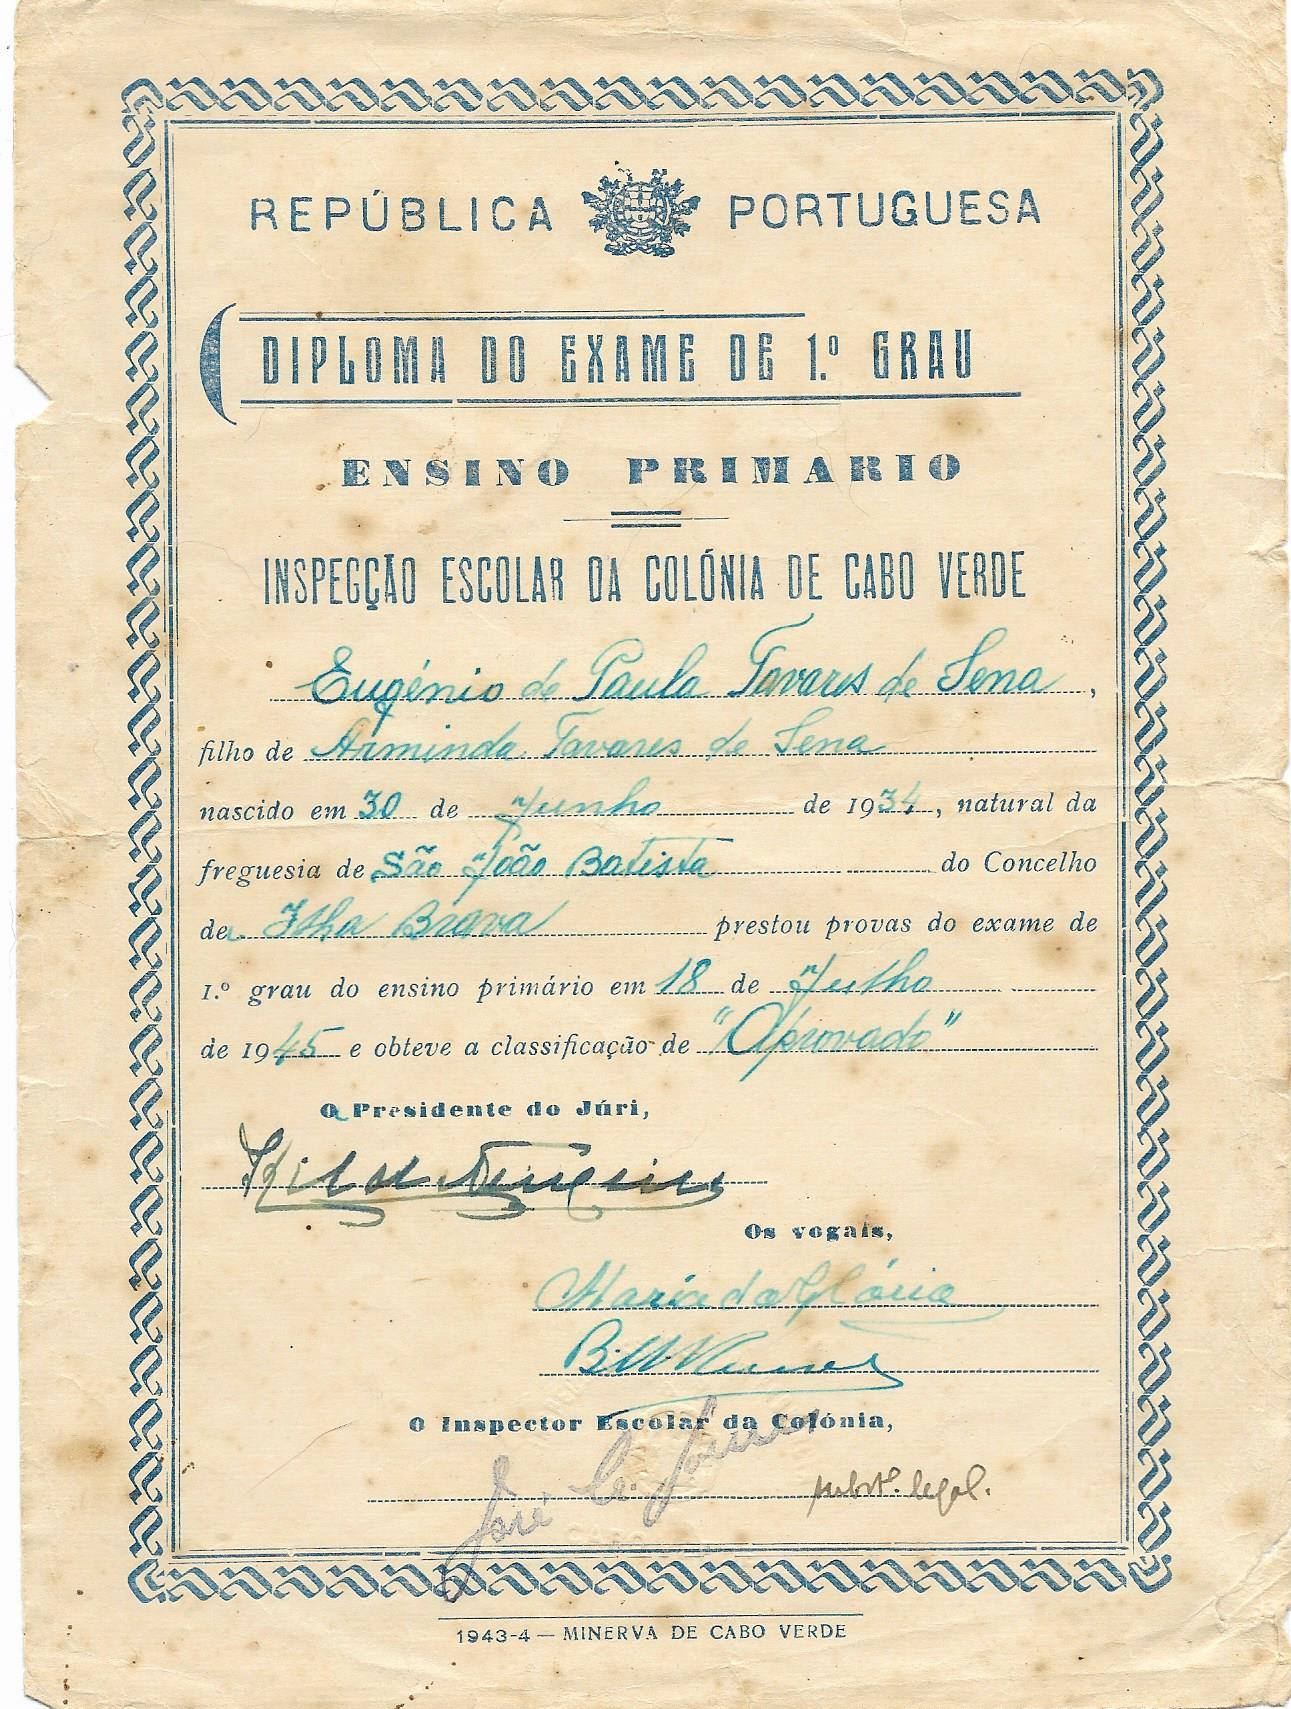 REPÚBLICA PORTUGUESA
DIPLOMA DO EXAME DE 1.º GRAU
ENSINO PRIMARIO
INSPECÇÃO ESCOLAR DA COLÓNIA DE CABO VERDE
Eugénio de Paula Tavares de Sena,
filho de Arminda Tavares de Sena
nascido em 30 de Junho de 1934, natural da
freguesia de São João Batista do Concelho
da Ilha Brava prestou provas do exame de
1.º grau do ensino primário em 18 de Julho
de 1945 e obteve a classificação de "Aprovado"
O Presidente do Júri,
Os vogais,
Maria da Glória
O Inspector Escolar da Colónia,
José
subst. legal.
1943-4 — MINERVA DE CABO VERDE